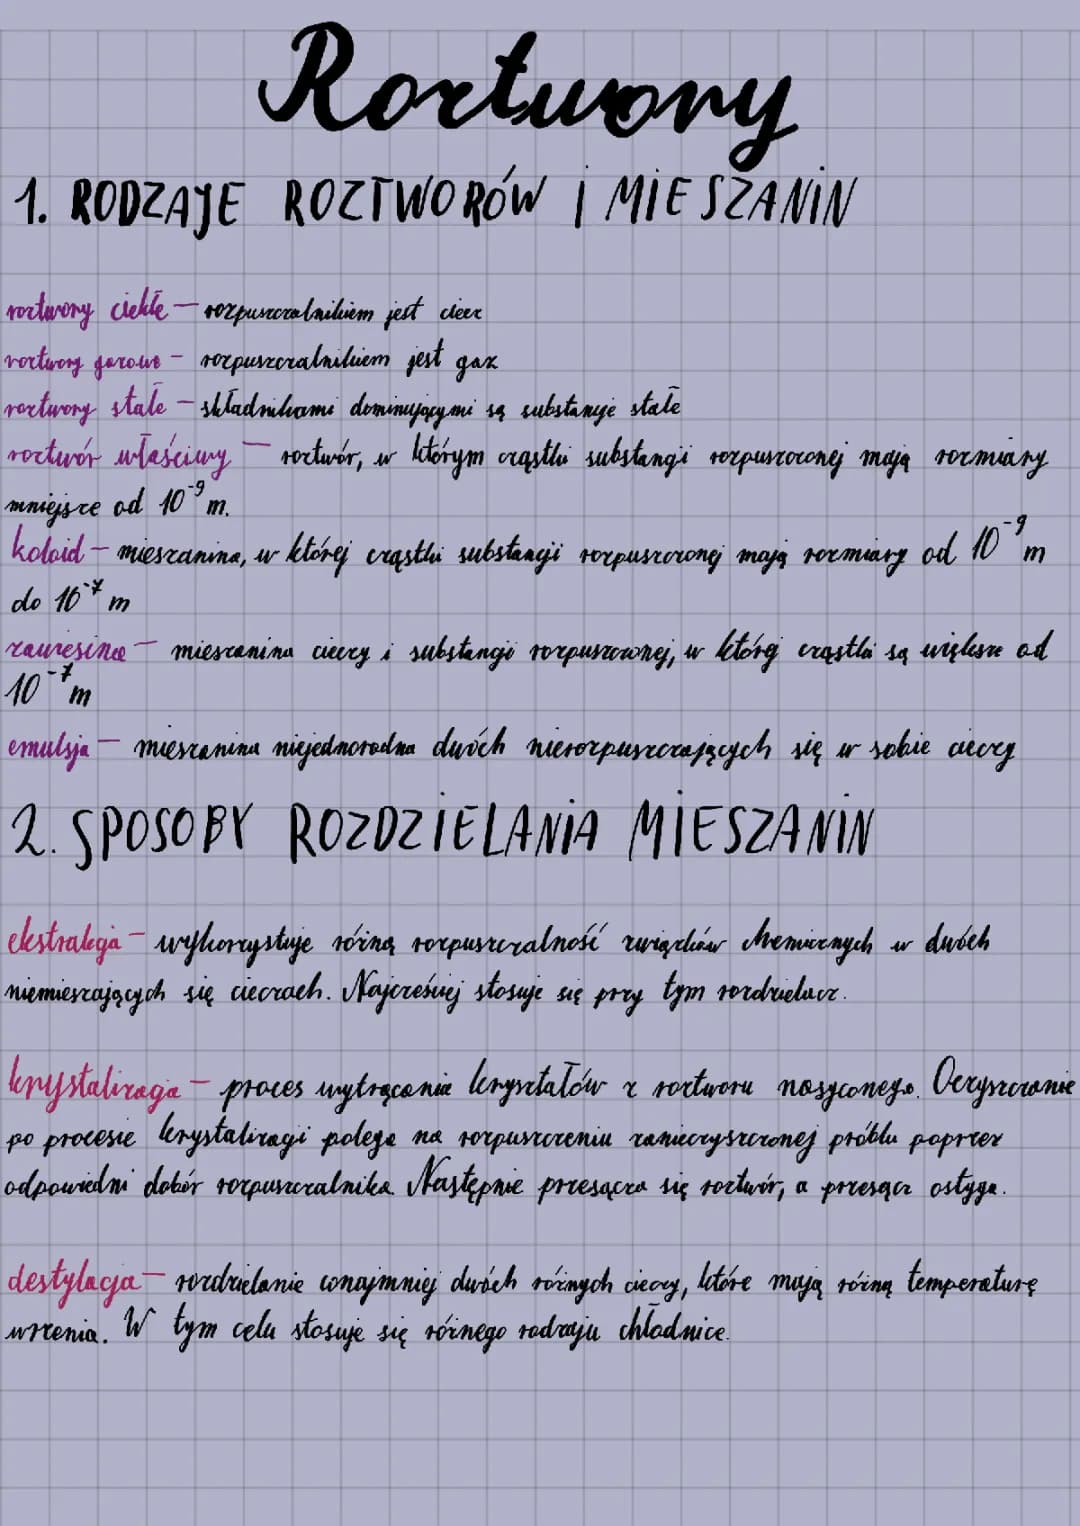 Roztwory
1. RODZAJE ROZTWORÓW I MIESZANIN
roztwory ciekłe – rozpuszczalnikiem jest ciecz
roztwory gazowe – rozpuszczalnikiem jest gaz
roztwory stałe – składnikami dominującymi są substancje stałe
roztwór właściwy – roztwór, w którym cząstki substancji rozpuszczonej mają rozmiary
mniejsze od 10⁻⁹ m.
koloid – mieszanina, w której cząstki substancji rozpuszczonej mają rozmiary od 10⁻⁹ m
do 10⁻⁷ m
zawiesina – mieszanina cieczy i substancji rozpuszczonej, w której cząstki są większe od
10⁻⁷ m
emulsja – mieszanina niejednorodna dwóch nierozpuszczających się w sobie cieczy
2. SPOSOBY ROZDZIELANIA MIESZANIN
ekstrakcja – wykorzystuje różną rozpuszczalność związków chemicznych w dwóch
niemieszających się cieczach. Najcześciej stosuje się przy tym rozdzielacz.
krystalizacja – proces wytrącania kryształów z roztworu nasyconego. Oczyszczanie
po procesie krystalizacji polega na rozpuszczeniu zanieczyszczonej próbki poprzez
odpowiedni dobór rozpuszczalnika. Następnie przesącza się roztwór, a przesącz ostyga.
destylacja – rozdzielanie conajmniej dwóch różnych cieczy, które mają różną temperaturę
wrzenia. W tym celu stosuje się różnego rodzaju chłodnice.